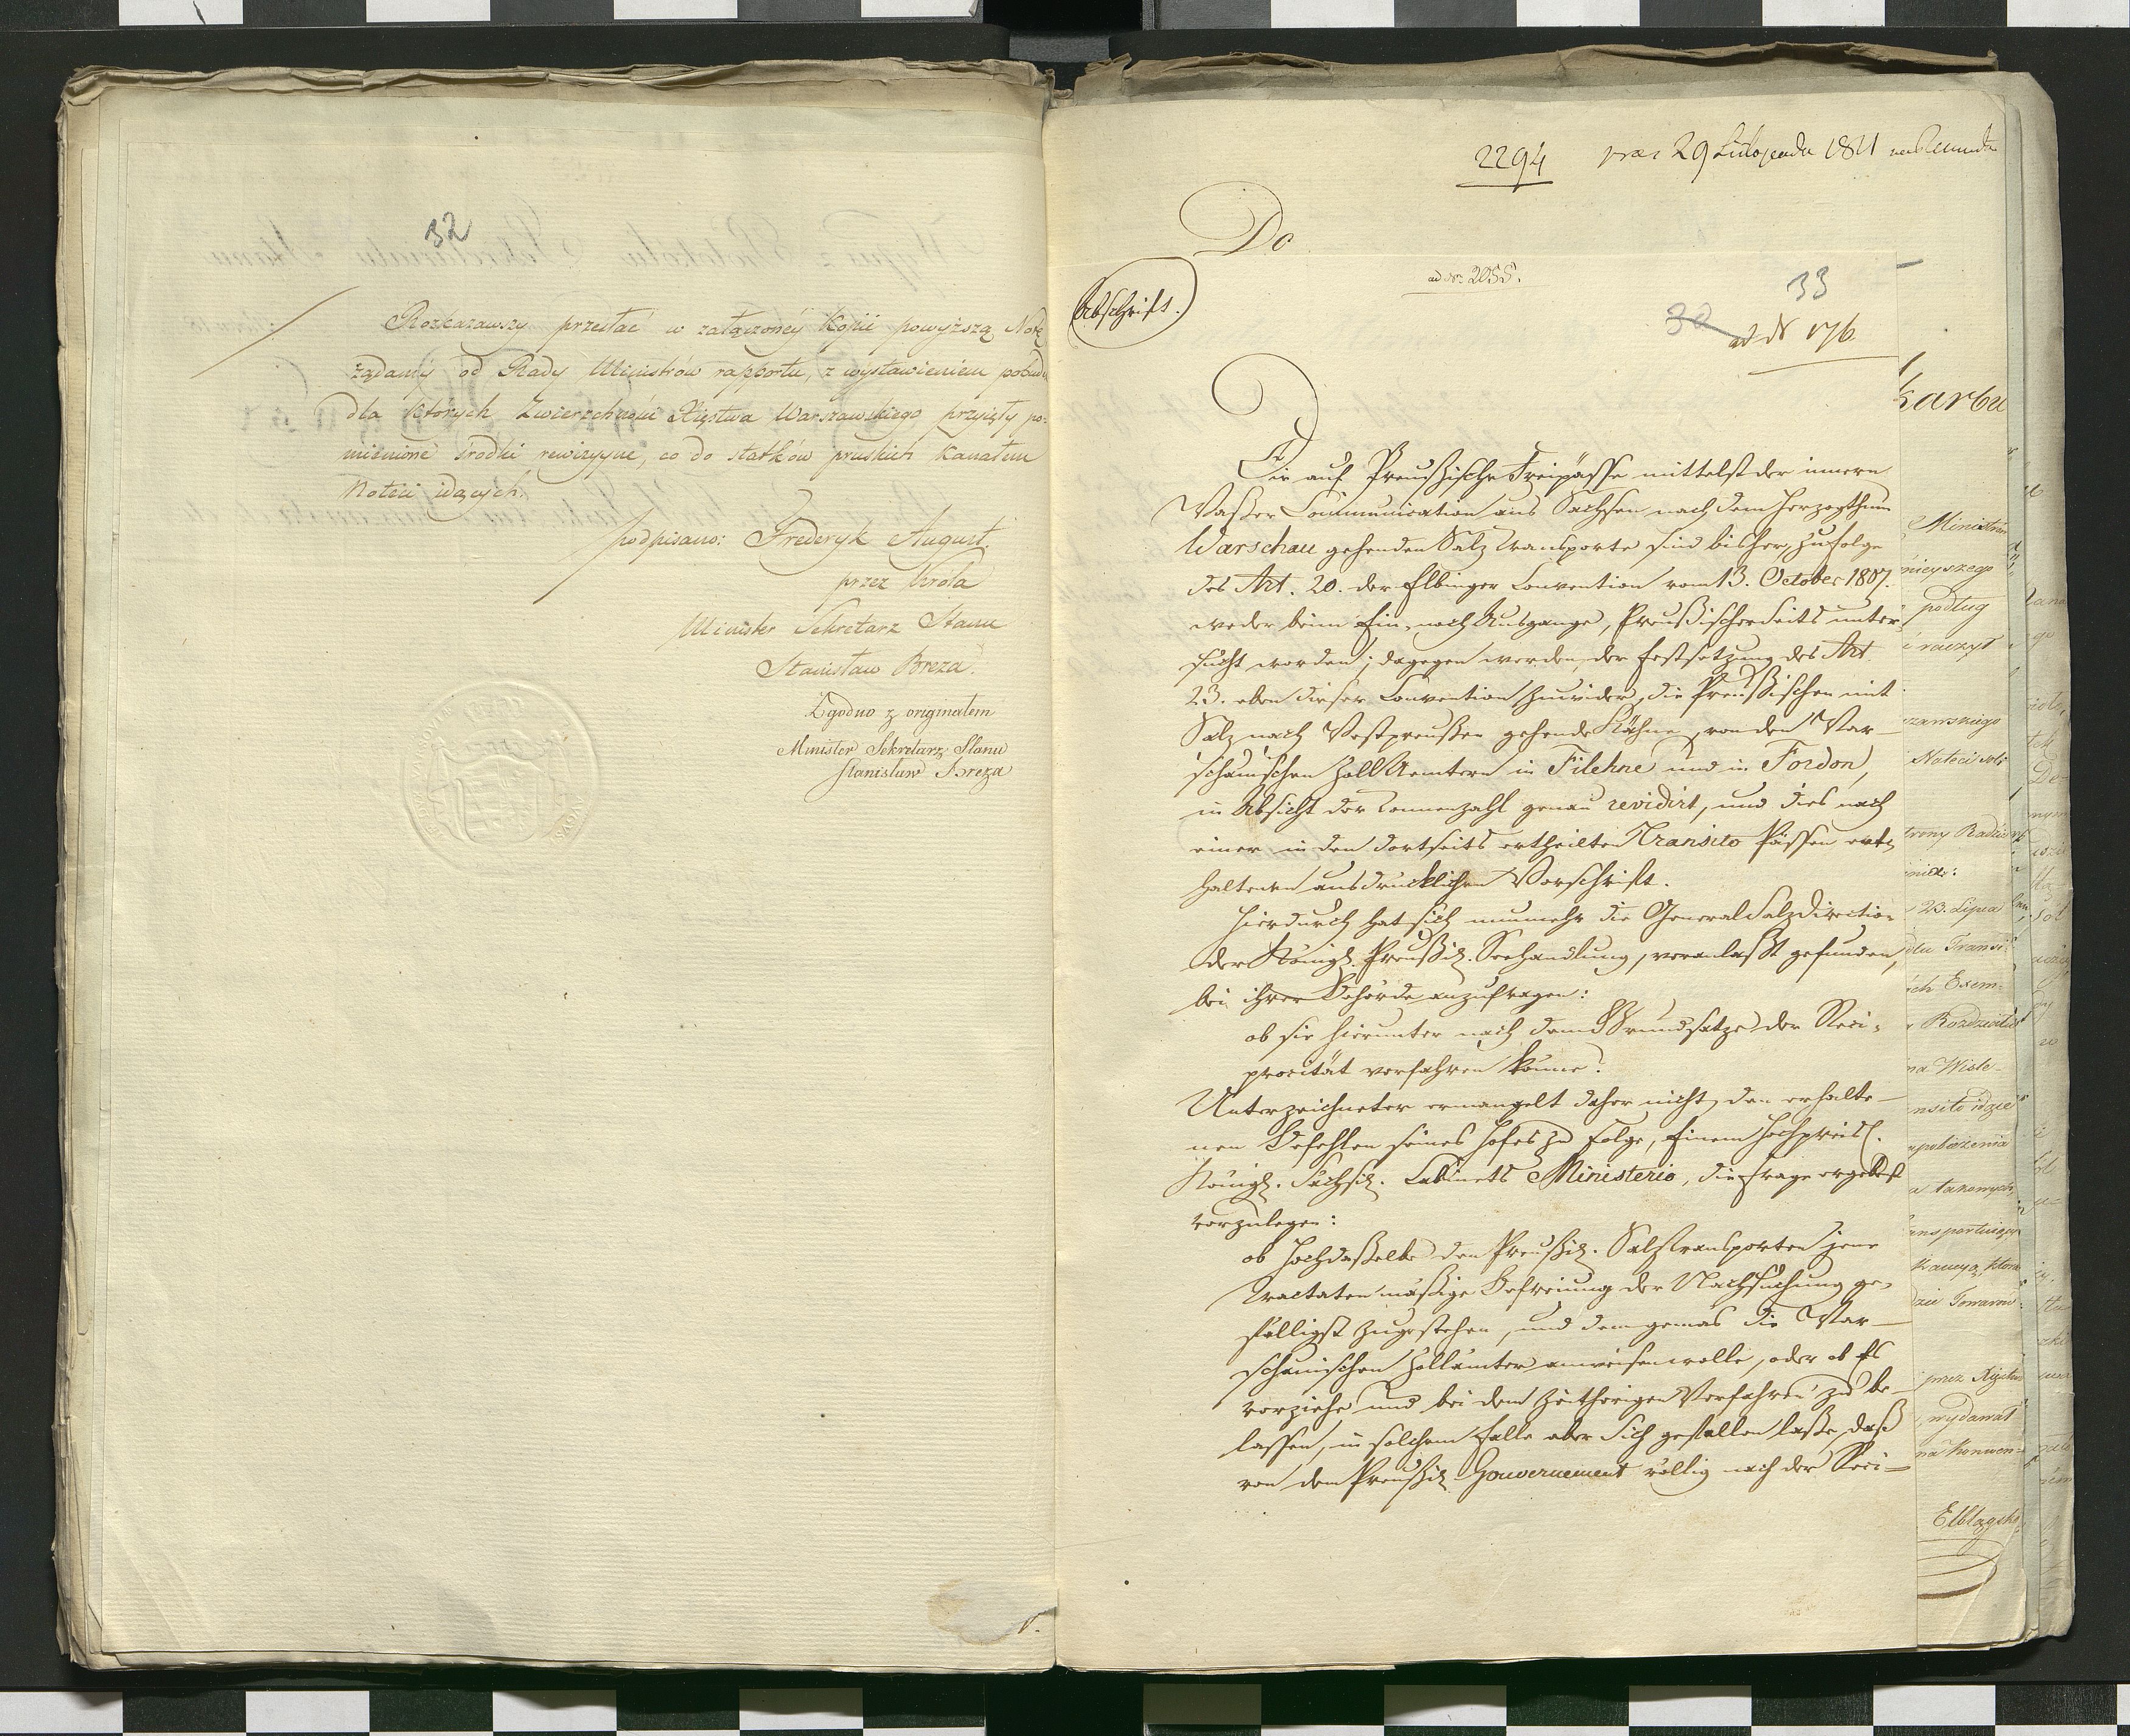 32
Rozkazawszy przesłać w załączonéy Kopii powyższą Notę
żądamy od Rady Ministrów rapportu, z wystawieniem pobud
dla których Zwierzchności Xięstwa Warszawskiego przyięły po=
mienione środki rewizyyne, co do statków pruskich kanałem
Noteci idących.
podpisano: Frederyk August.
przez Króla
Minister Sekretarz Stanu
Stanisław Breza.
Zgodno z oryginałem
Minister Sekretarz Stanu
Stanisław Breza
2294 29 Listopada 1811
Do
ad Nr. 2055.
Abschrift.
33
32
ad N 176
Die auf Preußische Freipässe mittelst der innern
Waßer Communication aus Sachsen nach dem Herzogthum
Warschau gehenden Salz Transporte sind bisher, zufolge
des Art. 20. der Elbinger Convention vom 13. October 1807.
weder beim Ein- noch Ausgange, Preußischerseits unter-
sucht worden; dagegen werden, der Festsetzung des Art.
23. eben dieser Convention zuwider, die Preußischen mit
Salz nach Westpreußen gehende Kähne, von den War-
schauischen Zoll Aemtern in Filehne und in Fordon,
in Absicht der Tonnenzahl genau revidirt, und dies nach
einer in den dortseits ertheilten Transito Pässen ent-
haltenen ausdrücklichen Vorschrift.
Hierdurch hat sich nunmehr die General Salzdirection
der Königl. Preußisch. Seehandlung, veranlaßt gefunden,
bei ihrer Behörde anzufragen:
ob sie hierunter nach dem Grundsatze der Reci-
procität verfahren könne?
Unterzeichneter ermangelt daher nicht, den erhalte-
nen Befehlen seines Hofes zu Folge, Einem Hochpreisl.
Königl. Sächsisch. Cabinets Ministerio, die Frage ergebenst
vorzulegen:
ob Hochdaßelbe den Preußisch. Salztransporten jene
Tractatenmäßige Befreiung der Nachsuchung ge-
fälligst zugestehen, und demgemäs die War-
schauischen Zollämter anweisen wolle, oder ob Es
vorziehe und bei dem zeitherigen Verfahren zu be-
lassen, in solchem Falle aber Sich gefallen laße, daß
von dem Preußisch. Gouvernement völlig nach der Reci-
karbu
Ministrów
nieyszego
podług
raczył
zawskiego
Noteci
trony Radzie
23. Lipca
dla Transi
Exem=
Rozdział
na Wiśle
nsito idzie
położenia
takowych
Kaucyą, która
Towarow
przez Xięstwo
wydawać
na Konwen=
Elbląską